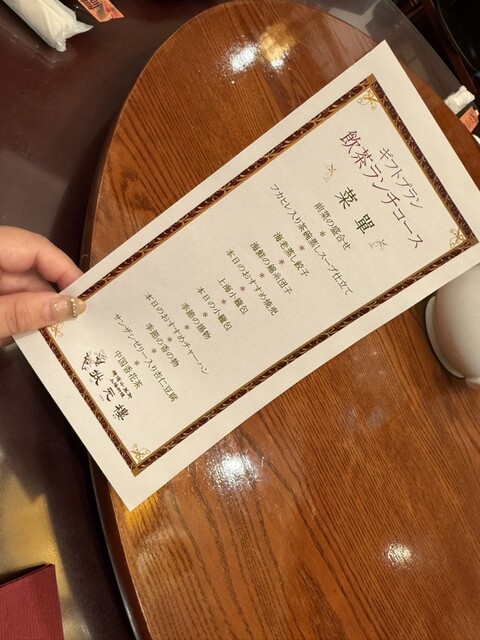 ギフトプラン
飲茶ランチコース
菜單
前菜の盛合せ
＊
フカヒレ入り茶碗蒸しスープ仕立て
＊
海老蒸し餃子
＊
海鮮の糯米団子
＊
本日のおすすめ焼売
＊
上海小籠包
＊
本日の小籠包
＊
季節の揚物
＊
本日のおすすめチャーハン
＊
季節の香の物
＊
サンザシゼリー入り杏仁豆腐
＊
中国香花茶
状元樓